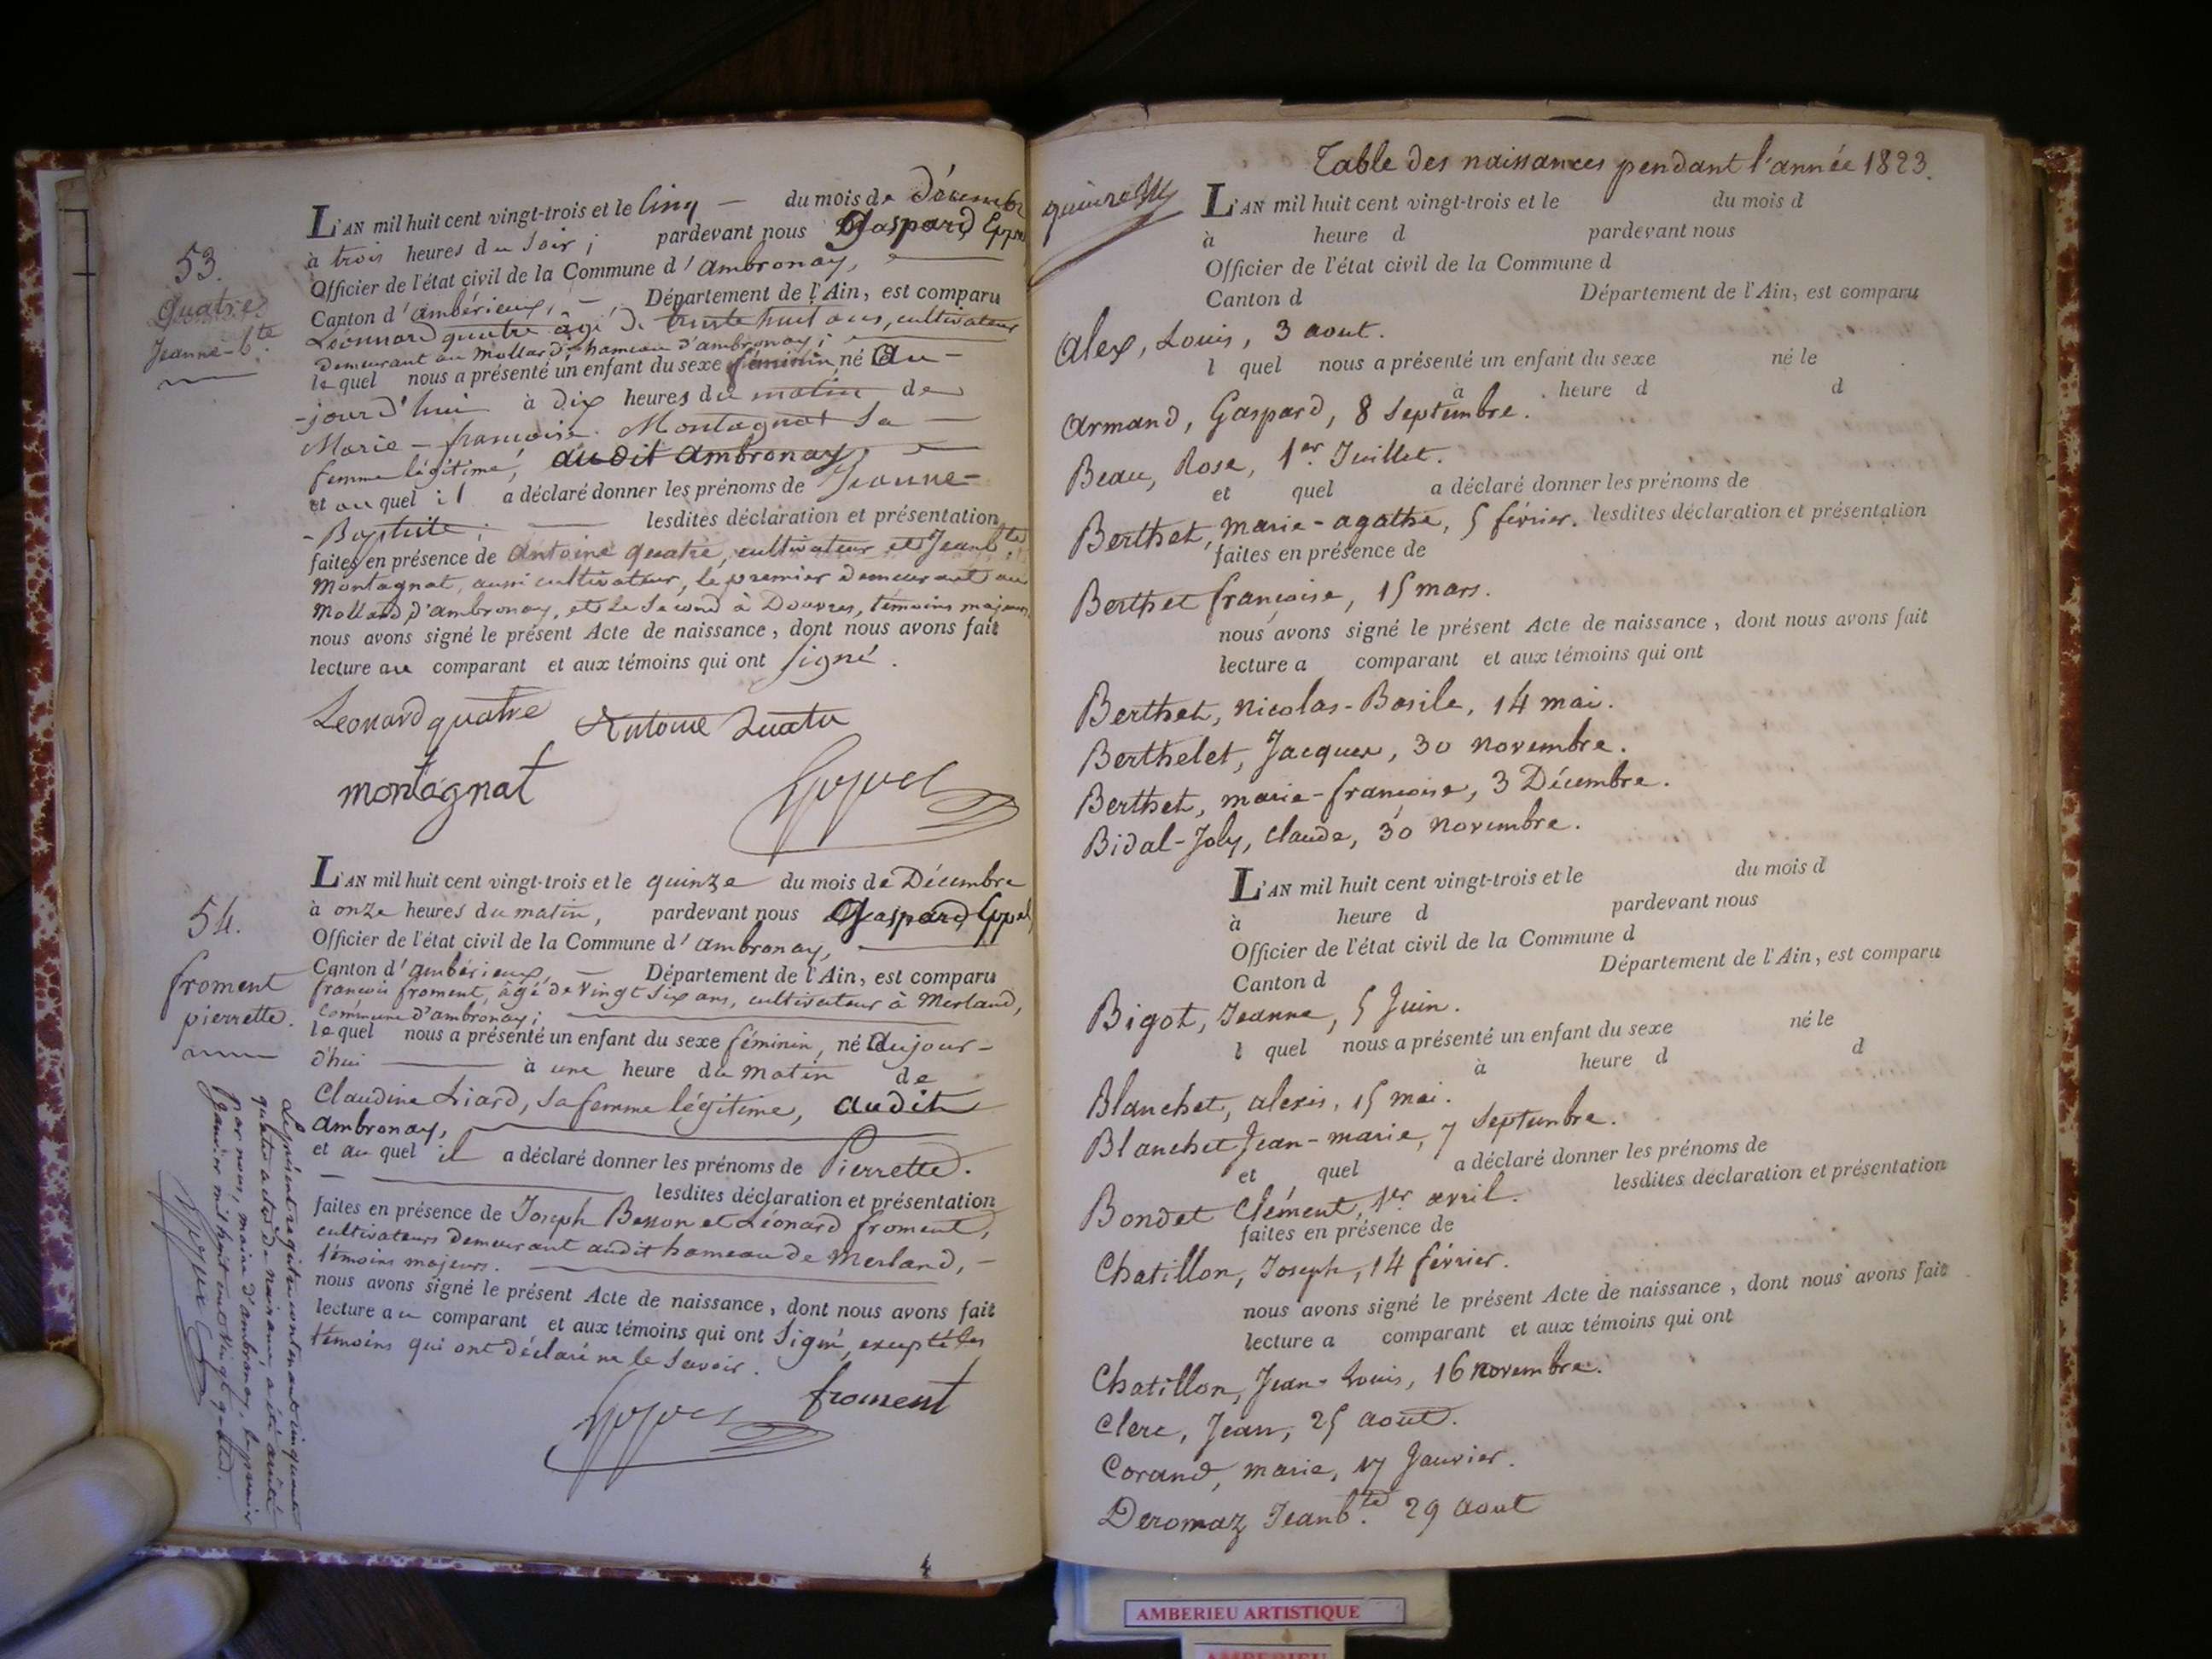 53.
Quatre
Jeanne-Bte
L'AN mil huit cent vingt-trois et le cinq — du mois de Décembre
à trois heures du soir ; pardevant nous Gaspard
Officier de l'état civil de la Commune d'ambronay,
Canton d'ambérieux, — Département de l'Ain, est comparu
Léonnard quatre âgé de trente huit ans, cultivateur
demeurant au Mollard, hameau d'ambronay ;
lequel nous a présenté un enfant du sexe féminin, né au-
-jourd'hui à dix heures du matin de
Marie-françoise Montagnat sa
femme légitime, audit Ambronay,
et auquel il a déclaré donner les prénoms de Jeanne-
-Baptiste ; lesdites déclaration et présentation
faites en présence de Antoine quatre, cultivateur et Jean Bte
Montagnat, aussi cultivateur, le premier demeurant au
Mollard d'ambronay, et le second à Douvres, témoins majeurs
nous avons signé le présent Acte de naissance, dont nous avons fait
lecture au comparant et aux témoins qui ont signé.
Leonard quatre Antoine Quatre
montagnat
54.
froment
pierrette.
L'AN mil huit cent vingt-trois et le quinze du mois de Décembre
à onze heures du matin, pardevant nous Gaspard
Officier de l'état civil de la Commune d'ambronay,
Canton d'ambérieux, — Département de l'Ain, est comparu
françois froment, âgé de vingt six ans, cultivateur à Merland,
Commune d'ambronay ;
lequel nous a présenté un enfant du sexe féminin, né aujour-
d'hui à une heure du matin de
Claudine Liard, sa femme légitime, audit
ambronay,
et auquel il a déclaré donner les prénoms de Pierrette.
lesdites déclaration et présentation
faites en présence de Joseph Besson et Léonard froment,
cultivateurs demeurant audit hameau de Merland, —
témoins majeurs.
nous avons signé le présent Acte de naissance, dont nous avons fait
lecture au comparant et aux témoins qui ont signé, excepté les
témoins qui ont déclaré ne le savoir.
froment
Le présent registre contenant cinquante
quatre actes de naissance, a été arrêté
par nous, maire d'ambronay, le premier
Janvier mil huit cent vingt quatre.
Table des naissances pendant l'année 1823.
L'AN mil huit cent vingt-trois et le du mois d
à heure d pardevant nous
Officier de l'état civil de la Commune d
Canton d Département de l'Ain, est comparu
Alex, Louis, 3 aout.
l quel nous a présenté un enfant du sexe né le
à heure d d
Armand, Gaspard, 8 Septembre.
Beau, Rose, 1er Juillet.
et quel a déclaré donner les prénoms de
Berthet, marie-agathe, 5 février. lesdites déclaration et présentation
faites en présence de
Berthet françoise, 15 mars.
nous avons signé le présent Acte de naissance, dont nous avons fait
lecture a comparant et aux témoins qui ont
Berthet, nicolas-Basile, 14 mai.
Berthelet, Jacques, 30 novembre.
Berthet, marie-françoise, 3 Décembre.
Bidal-Joly, Claude, 30 novembre.
L'AN mil huit cent vingt-trois et le du mois d
à heure d pardevant nous
Officier de l'état civil de la Commune d
Canton d Département de l'Ain, est comparu
Bigot, Jeanne, 5 Juin.
l quel nous a présenté un enfant du sexe né le
à heure d d
Blanchet, alexis, 15 mai.
Blanchet Jean-marie, 7 Septembre.
et quel a déclaré donner les prénoms de
lesdites déclaration et présentation
Bondet Clément, 1er avril.
faites en présence de
Chatillon, Joseph, 14 février.
nous avons signé le présent Acte de naissance, dont nous avons fait
lecture a comparant et aux témoins qui ont
Chatillon, Jean-Louis, 16 novembre.
Clerc, Jean, 25 aout.
Corand, marie, 17 Janvier.
Deromaz Jean bte 29 aout
AMBERIEU ARTISTIQUE
AMBERIEU